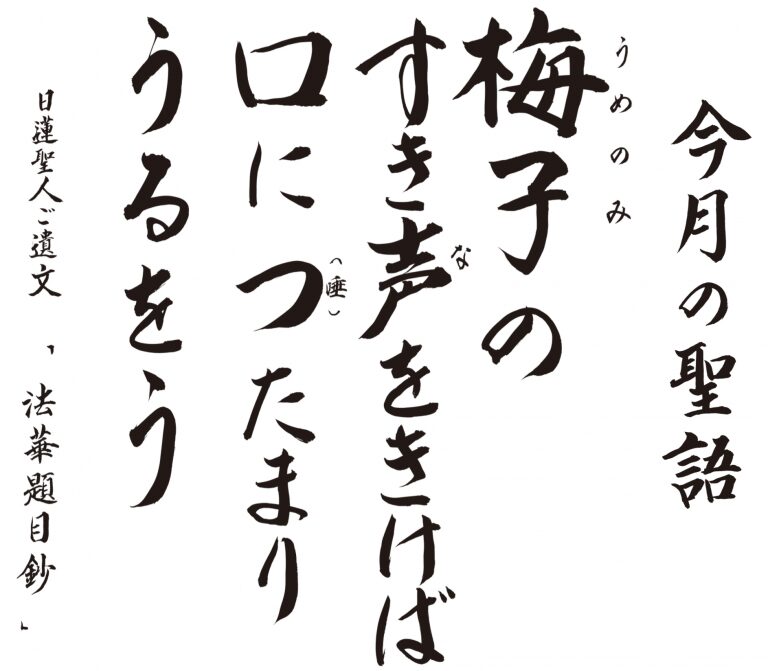 今月の聖語
うめのみ
梅子の
すき声をきけば
な
口につたまり
（唾）
うるをう
日蓮聖人ご遺文
「法華題目鈔」